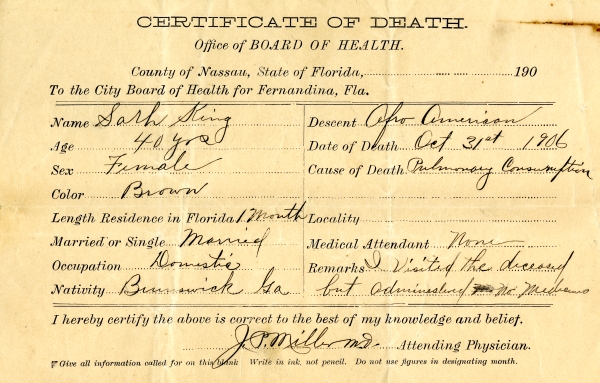 CERTIFICATE OF DEATH.
Office of BOARD OF HEALTH.
County of Nassau, State of Florida, 190
To the City Board of Health for Fernandina, Fla.
Name Sarh King
Age 40 yrs
Sex Female
Color Brown
Length Residence in Florida 1 Month
Married or Single Married
Occupation Domestic
Nativity Brunswick Ga
Descent Afro American
Date of Death Oct 31st 1906
Cause of Death Pulmonary Consumption
Locality
Medical Attendant None
Remarks I Visited the deceased
but No
I hereby certify the above is correct to the best of my knowledge and belief.
J. P. Miller M.D. Attending Physician.
☞Give all information called for on this blank Write in ink, not pencil. Do not use figures in designating month.